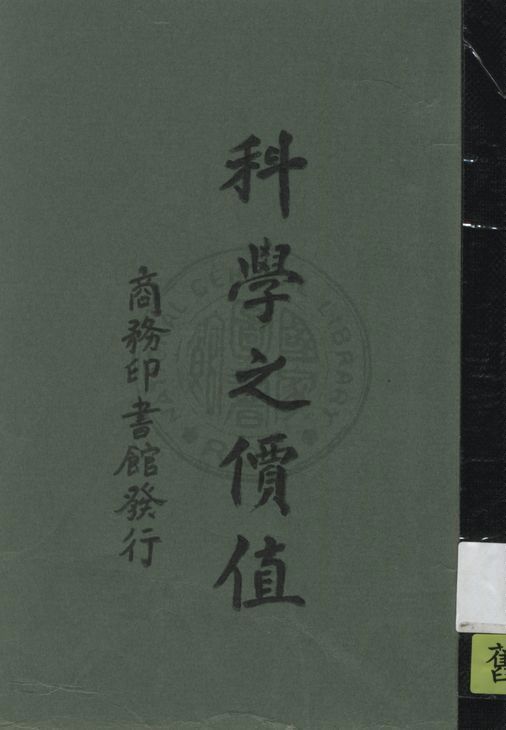 科學之價值
商務印書館發行
NATIONAL CENTRAL LIBRARY
舊